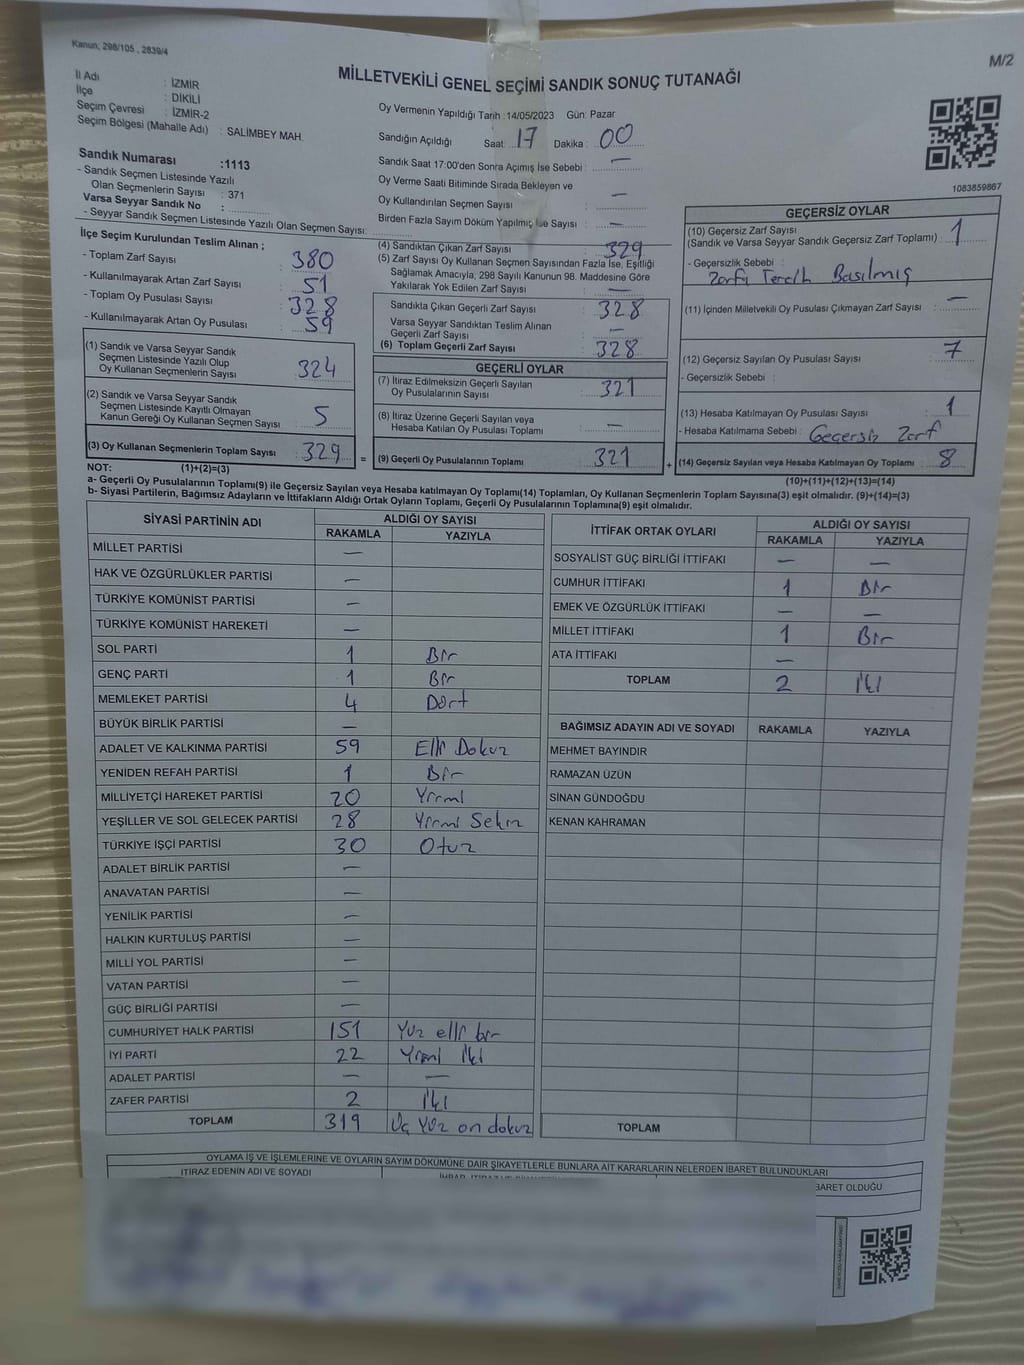 Kanun; 298/105 , 2839/4
M/2
MİLLETVEKİLİ GENEL SEÇİMİ SANDIK SONUÇ TUTANAĞI
İl Adı : İZMİR
İlçe : DİKİLİ
Seçim Çevresi : İZMİR-2
Seçim Bölgesi (Mahalle Adı) : SALİMBEY MAH.
Sandık Numarası :1113
- Sandık Seçmen Listesinde Yazılı
Olan Seçmenlerin Sayısı : 371
Varsa Seyyar Sandık No :
- Seyyar Sandık Seçmen Listesinde Yazılı Olan Seçmen Sayısı:
Oy Vermenin Yapıldığı Tarih :14/05/2023 Gün: Pazar
Sandığın Açıldığı Saat: 17 Dakika : 00
Sandık Saat 17:00'den Sonra Açımış İse Sebebi : —
Oy Verme Saati Bitiminde Sırada Bekleyen ve
Oy Kullandırılan Seçmen Sayısı : —
Birden Fazla Sayım Döküm Yapılmış İse Sayısı : —
1083859867
İlçe Seçim Kurulundan Teslim Alınan ;
- Toplam Zarf Sayısı : 380
- Kullanılmayarak Artan Zarf Sayısı : 51
- Toplam Oy Pusulası Sayısı : 328
- Kullanılmayarak Artan Oy Pusulası : 59
(1) Sandık ve Varsa Seyyar Sandık
Seçmen Listesinde Yazılı Olup
Oy Kullanan Seçmenlerin Sayısı : 324
(2) Sandık ve Varsa Seyyar Sandık
Seçmen Listesinde Kayıtlı Olmayan
Kanun Gereği Oy Kullanan Seçmen Sayısı : 5
(3) Oy Kullanan Seçmenlerin Toplam Sayısı : 329
(4) Sandıktan Çıkan Zarf Sayısı : 329
(5) Zarf Sayısı Oy Kullanan Seçmen Sayısından Fazla İse, Eşitliği
Sağlamak Amacıyla, 298 Sayılı Kanunun 98. Maddesine Göre
Yakılarak Yok Edilen Zarf Sayısı : —
Sandıkta Çıkan Geçerli Zarf Sayısı : 328
Varsa Seyyar Sandıktan Teslim Alınan
Geçerli Zarf Sayısı : —
(6) Toplam Geçerli Zarf Sayısı : 328
GEÇERLİ OYLAR
(7) İtiraz Edilmeksizin Geçerli Sayılan
Oy Pusulalarının Sayısı : 321
(8) İtiraz Üzerine Geçerli Sayılan veya
Hesaba Katılan Oy Pusulası Toplamı : —
= (9) Geçerli Oy Pusulalarının Toplamı : 321
GEÇERSİZ OYLAR
(10) Geçersiz Zarf Sayısı
(Sandık ve Varsa Seyyar Sandık Geçersiz Zarf Toplamı) : 1
- Geçersizlik Sebebi :
Zarfa Tercih Basılmış
(11) İçinden Milletvekili Oy Pusulası Çıkmayan Zarf Sayısı : —
(12) Geçersiz Sayılan Oy Pusulası Sayısı : 7
- Geçersizlik Sebebi :
(13) Hesaba Katılmayan Oy Pusulası Sayısı : 1
- Hesaba Katılmama Sebebi : Geçersiz Zarf
+ (14) Geçersiz Sayılan veya Hesaba Katılmayan Oy Toplamı : 8
NOT: (1)+(2)=(3)
(10)+(11)+(12)+(13)=(14)
a- Geçerli Oy Pusulalarının Toplamı(9) ile Geçersiz Sayılan veya Hesaba katılmayan Oy Toplamı(14) Toplamları, Oy Kullanan Seçmenlerin Toplam Sayısına(3) eşit olmalıdır. (9)+(14)=(3)
b- Siyasi Partilerin, Bağımsız Adayların ve İttifakların Aldığı Ortak Oyların Toplamı, Geçerli Oy Pusulalarının Toplamına(9) eşit olmalıdır.
SİYASİ PARTİNİN ADI ALDIĞI OY SAYISI
RAKAMLA YAZIYLA
MİLLET PARTİSİ —
HAK VE ÖZGÜRLÜKLER PARTİSİ —
TÜRKİYE KOMÜNİST PARTİSİ —
TÜRKİYE KOMÜNİST HAREKETİ —
SOL PARTİ 1 Bir
GENÇ PARTİ 1 Bir
MEMLEKET PARTİSİ 4 Dört
BÜYÜK BİRLİK PARTİSİ —
ADALET VE KALKINMA PARTİSİ 59 Elli Dokuz
YENİDEN REFAH PARTİSİ 1 Bir
MİLLİYETÇİ HAREKET PARTİSİ 20 Yirmi
YEŞİLLER VE SOL GELECEK PARTİSİ 28 Yirmi Sekiz
TÜRKİYE İŞÇİ PARTİSİ 30 Otuz
ADALET BİRLİK PARTİSİ —
ANAVATAN PARTİSİ —
YENİLİK PARTİSİ —
HALKIN KURTULUŞ PARTİSİ —
MİLLİ YOL PARTİSİ —
VATAN PARTİSİ —
GÜÇ BİRLİĞİ PARTİSİ —
CUMHURİYET HALK PARTİSİ 151 Yüz elli bir
İYİ PARTİ 22 Yirmi iki
ADALET PARTİSİ — —
ZAFER PARTİSİ 2 İki
TOPLAM 319 Üç Yüz on dokuz
İTTİFAK ORTAK OYLARI ALDIĞI OY SAYISI
RAKAMLA YAZIYLA
SOSYALİST GÜÇ BİRLİĞİ İTTİFAKI — —
CUMHUR İTTİFAKI 1 Bir
EMEK VE ÖZGÜRLÜK İTTİFAKI — —
MİLLET İTTİFAKI 1 Bir
ATA İTTİFAKI —
TOPLAM 2 İki
BAĞIMSIZ ADAYIN ADI VE SOYADI RAKAMLA YAZIYLA
MEHMET BAYINDIR
RAMAZAN ÜZÜN
SİNAN GÜNDOĞDU
KENAN KAHRAMAN
TOPLAM
OYLAMA İŞ VE İŞLEMLERİNE VE OYLARIN SAYIM DÖKÜMÜNE DAİR ŞİKAYETLERLE BUNLARA AİT KARARLARIN NELERDEN İBARET BULUNDUKLARI
İTİRAZ EDENİN ADI VE SOYADI
BARET OLDUĞU